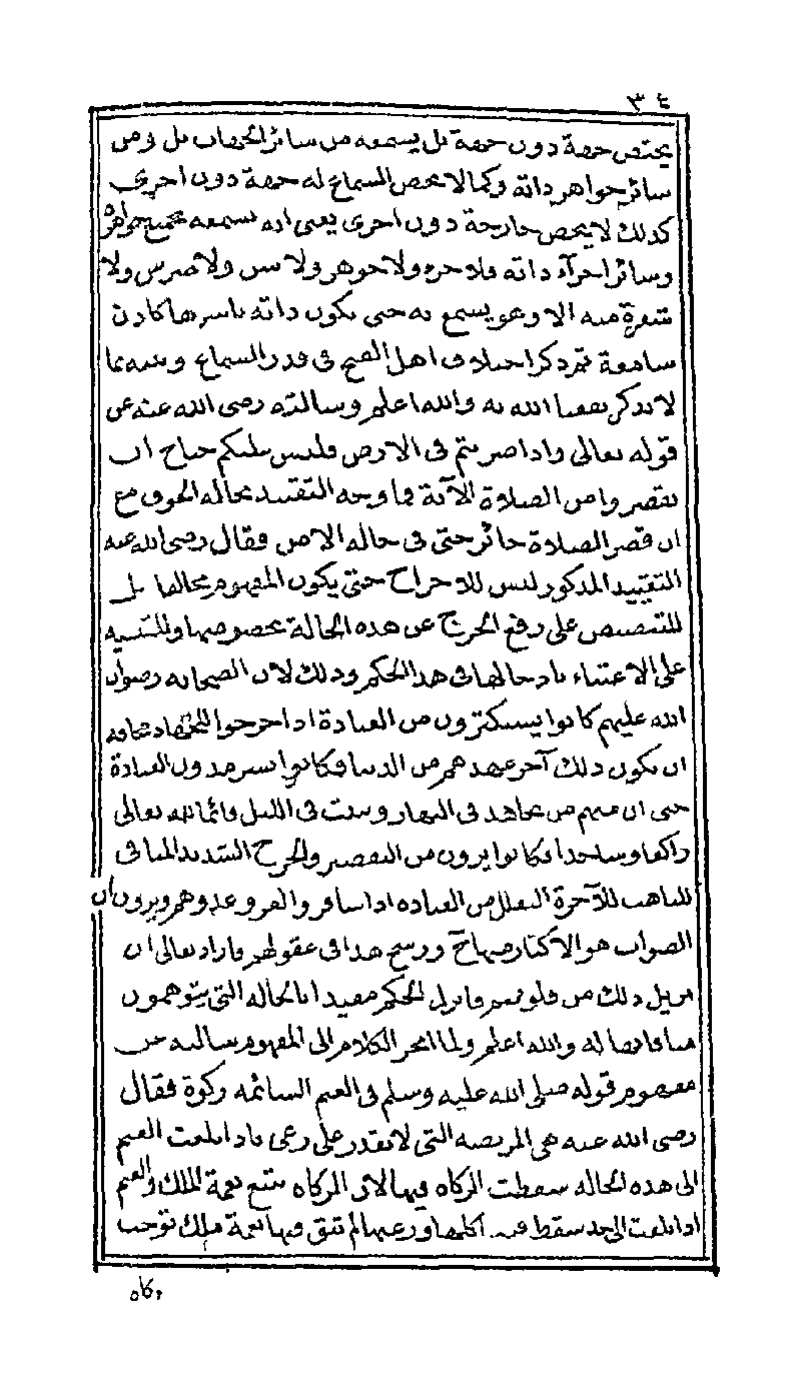 ٣٤
يختص جهة دون جهة بل يسمعه من سائر الجهات بل ومن
سائر جواهر ذاته وكما لا يخص السماع له جهة دون اخرى
كذلك لا يخص جارحة دون اخرى يعني انه يسمعه بجميع جواهره
وسائر اجزاء ذاته فلا جزء ولا جوهر ولا سن ولا ضرس ولا
شعرة منه الا وهو يسمع به حتى يكون ذاته باسرها كاذن
سامعة ثم ذكر اختلاف اهل الفتح في قدر السماع وبينه بما
لا يذكر نفعنا الله به والله اعلم وسالته رضى الله عنه عن
قوله تعالى واذا ضربتم في الارض فليس عليكم جناح ان
تقصروا من الصلاة الآية فما وجه التقييد بحالة الخوف مع
ان قصر الصلاة جائز حتى في حالة الامن فقال رضى الله عنه
التقييد المذكور ليس للاخراج حتى يكون المفهوم مخالفا بل
للتنصيص على رفع الحرج عن هذه الحالة بخصوصها وللتنبيه
على الاعتناء بادخالها في هذا الحكم وذلك لان الصحابة رضوان
الله عليهم كانوا يستكثرون من العبادة اذا خرجوا للجهاد مخافة
ان يكون ذلك آخر عهدهم من الدنيا فكانوا يستزيدون العبادة
حتى ان منهم من يجاهد في النهار ويبيت في الليل قائما لله تعالى
راكعا وساجدا فكانوا يرون من التقصير والحرج الشديد المنافي
للتاهب للآخرة التقلل من العبادة اذا سافروا لغزو عدوهم ويرون ان
الصواب هو الاكثار منها ورسخ هذا في عقولهم فاراد تعالى ان
يزيل ذلك من قلوبهم فانزل الحكم مقيدا بالحالة التي يتوهمون
منافاتها له والله اعلم ولما انجر الكلام الى المفهوم سالته عن
مفهوم قوله صلى الله عليه وسلم في الغنم السائمة زكوة فقال
رضى الله عنه هي المريضة التي لا تقدر على رعي فاذا بلغت الغنم
الى هذه الحالة سقطت الزكاة فيها لان الزكاة تتبع نعمة الملك والغنم
اذا بلغت الى حد سقط فيه اكلها ورعيها لم تبق فيها نعمة ملك توجب
زكاة